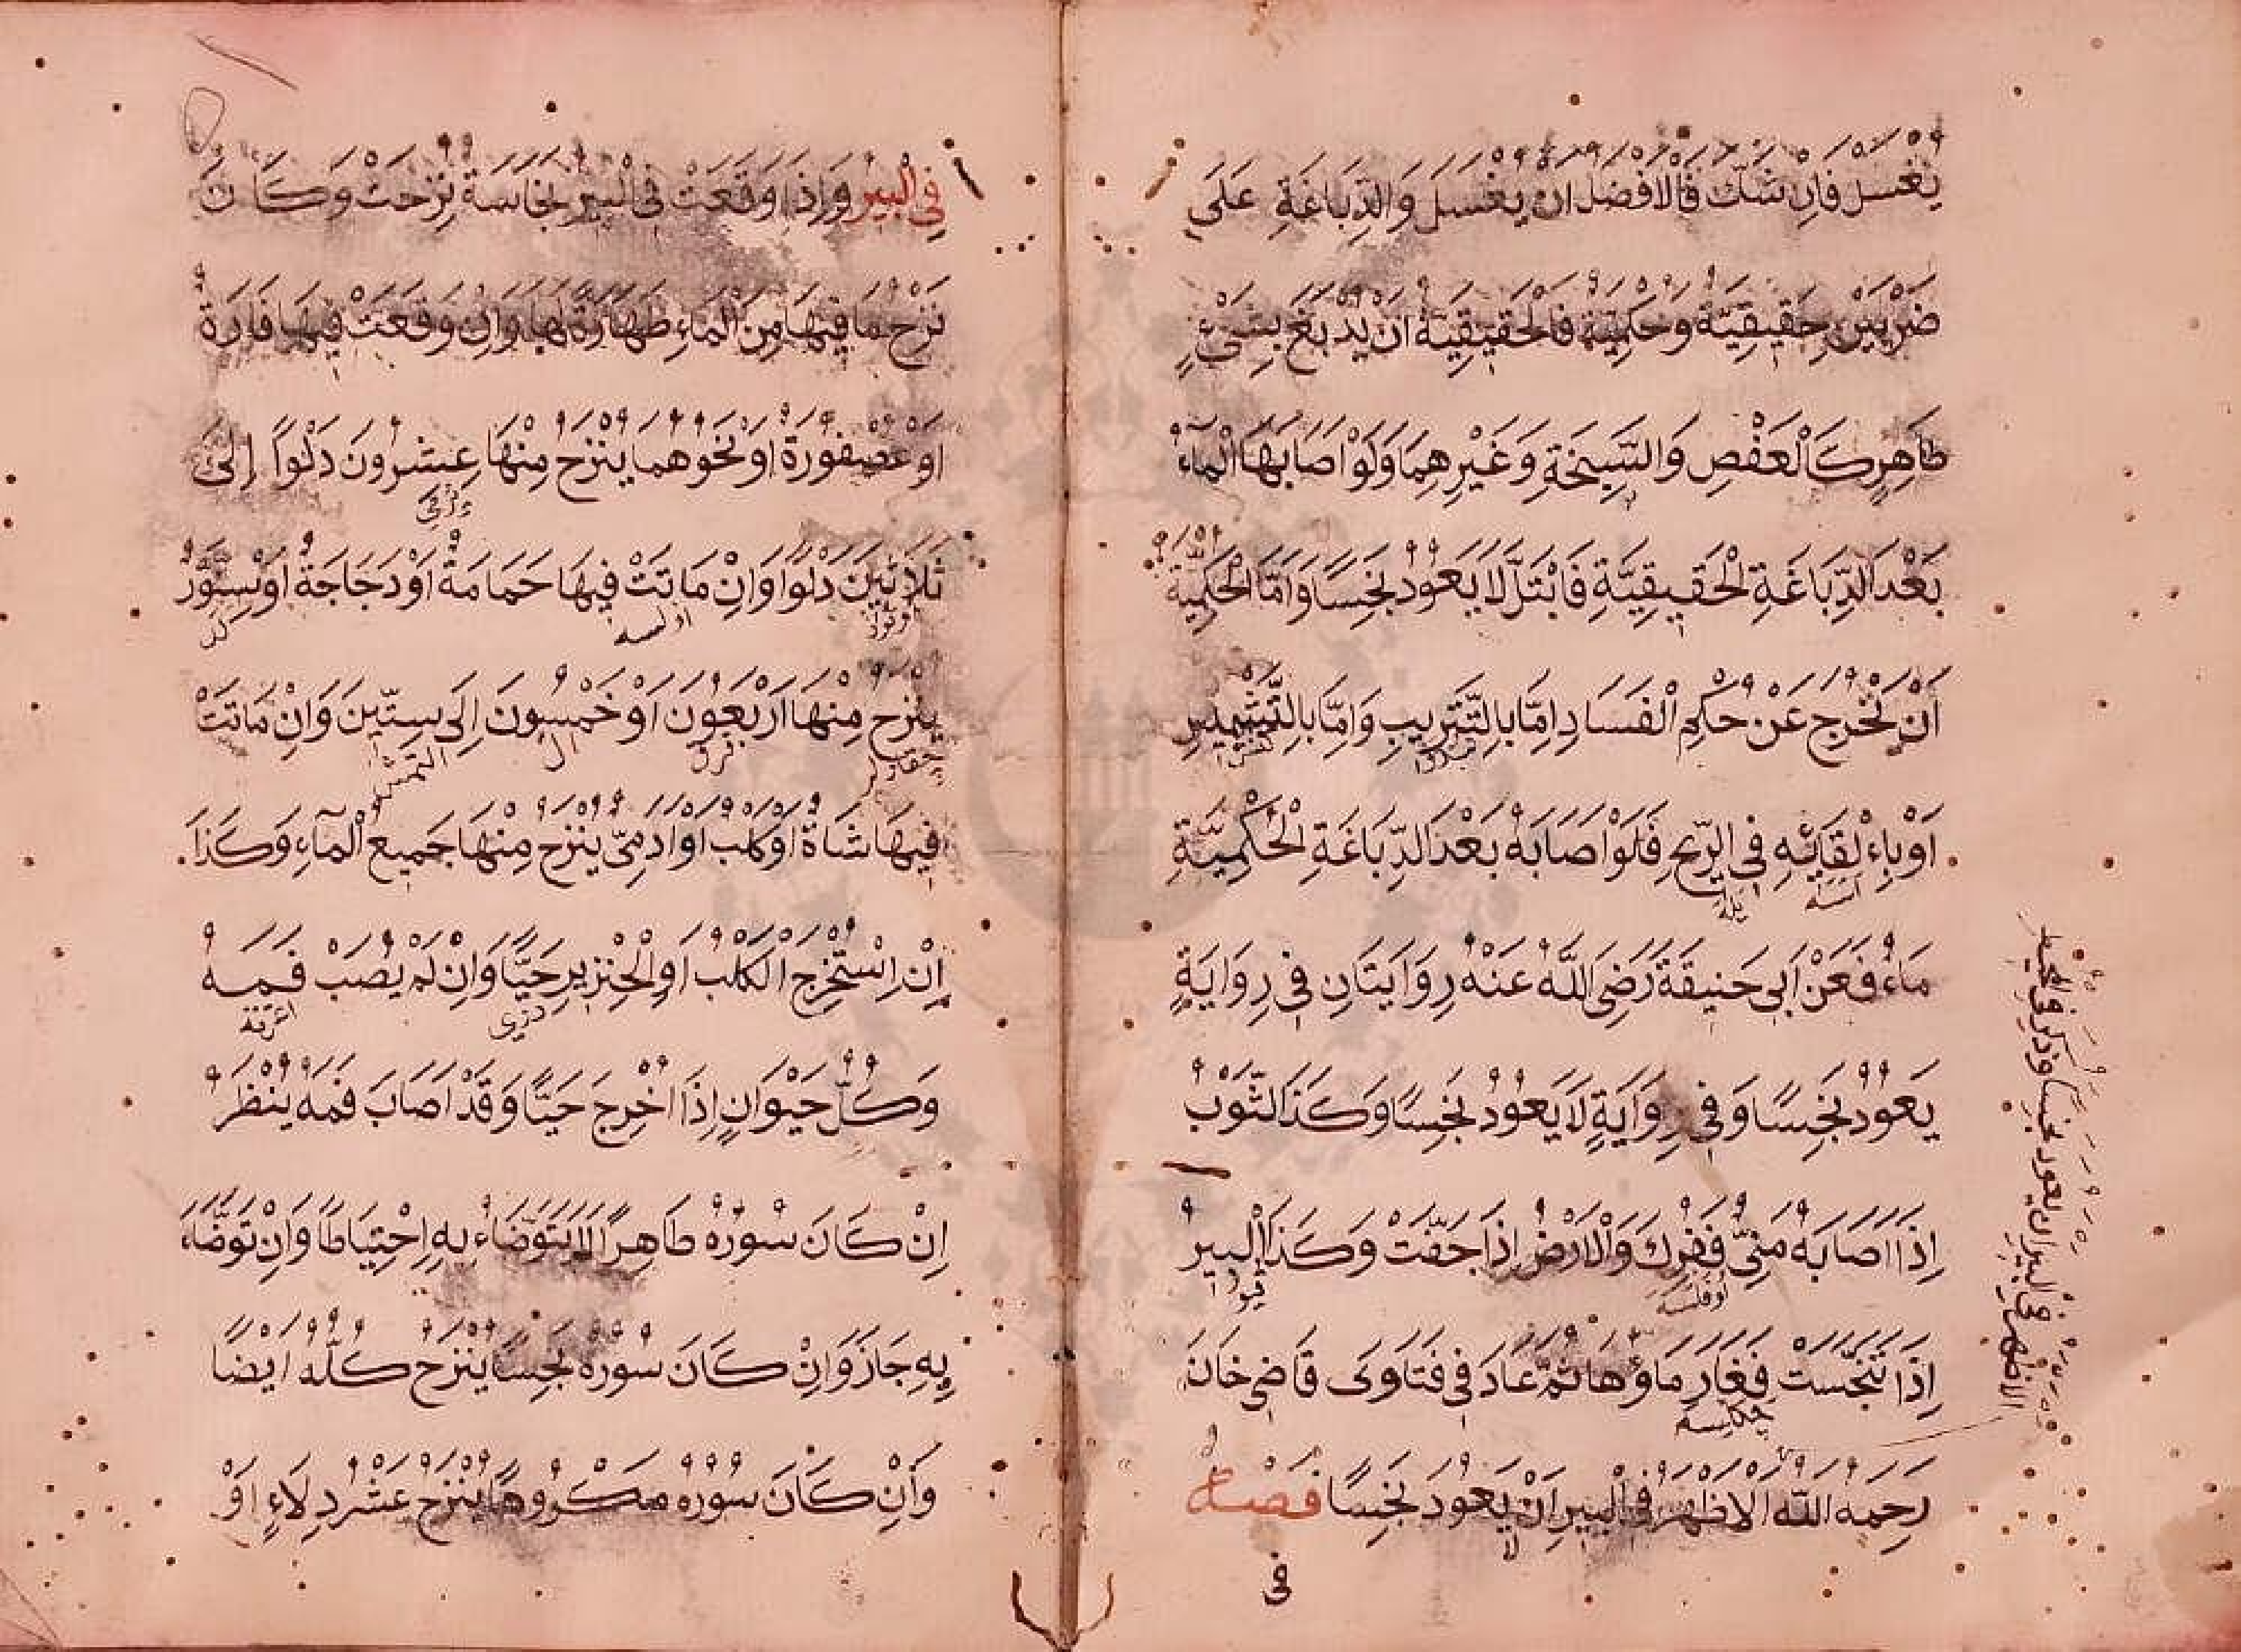 يُغْسَلُ فَاِنْ شَكَّ فَالْاَفْضَلُ اَنْ يُغْسَلَ وَالدِّبَاغَةِ عَلَى
ضَرْبَيْنِ حَقِيقِيَّةٌ وَحُكْمِيَّةٌ فَالْحَقِيقِيَّةُ اَنْ يُدْبَغَ بِشَىْءٍ
طَاهِرٍ كَالْعَفْصِ وَالسَّبِخَةِ وَغَيْرِهِمَا وَلَوْ اَصَابَهَا الْمَاءُ
بَعْدَ الدِّبَاغَةِ الْحَقِيقِيَّةِ فَابْتَلَّ لَا يَعُودُ نَجِسًا وَاَمَّا الْحُكْمِيَّةُ
اَنْ تَخْرُجَ عَنْ حُكْمِ الْفَسَادِ اِمَّا بِالتَّتْرِيبِ وَاِمَّا بِالتَّشْمِيسِ
اَوْ بِاِلْقَائِهِ فِى الرِّيحِ فَلَوْ اَصَابَهُ بَعْدَ الدِّبَاغَةِ الْحُكْمِيَّةِ
مَاءٌ فَعَنْ اَبِى حَنِيفَةَ رَضِىَ اللّٰهُ عَنْهُ رِوَايَتَانِ فِى رِوَايَةٍ
يَعُودُ نَجِسًا وَفِى رِوَايَةٍ لَا يَعُودُ نَجِسًا وَكَذَا الثَّوْبُ
اِذَا اَصَابَهُ مَنِىٌّ فَفُرِكَ وَالْاَرْضُ اِذَا جَفَّتْ وَكَذَا الْبِيرُ
اِذَا تَنَجَّسَتْ فَغَارَ مَاؤُهَا ثُمَّ عَادَ فِى فَتَاوَى قَاضِى خَانَ
رَحِمَهُ اللّٰهُ الْاَظْهَرُ فِى الْبِيرِ اَنْ يَعُودَ نَجِسًا فَصْلٌ
فى
فِى الْبِيرِ وَاِذَا وَقَعَتْ فِى الْبِيرِ نَجَاسَةٌ نُزِحَتْ وَكَانَ
نَزْحُ مَا فِيهَا مِنَ الْمَاءِ طَهَارَةً لَهَا وَاِنْ وَقَعَتْ فِيهَا فَارَةٌ
اَوْ عُصْفُورَةٌ اَوْ نَحْوُهُمَا يُنْزَحُ مِنْهَا عِشْرُونَ دَلْوًا اِلَى
ثَلَاثِينَ دَلْوًا وَاِنْ مَاتَتْ فِيهَا حَمَامَةٌ اَوْ دَجَاجَةٌ اَوْ سِنَّوْرٌ
يُنْزَحُ مِنْهَا اَرْبَعُونَ اَوْ خَمْسُونَ اِلَى سِتِّينَ وَاِنْ مَاتَتْ
فِيهَا شَاةٌ اَوْ كَلْبٌ اَوْ اٰدَمِىٌّ يُنْزَحُ مِنْهَا جَمِيعُ الْمَاءِ وَكَذَا
اِنْ اسْتُخْرِجَ الْكَلْبُ اَوِ الْخِنْزِيرِ حَيًّا وَاِنْ لَمْ يُصَبْ فَمَهُ
وَكُلُّ حَيْوَانٍ اِذَا اُخْرِجَ حَيًّا وَقَدْ اَصَابَ فَمَهُ يُنْظَرُ
اِنْ كَانَ سُورُهُ طَاهِرًا لَا يَتَوَضَّاُ بِهِ اِحْتِيَاطًا وَاِنْ تَوَضَّاَ
بِهِ جَازَ وَاِنْ كَانَ سُورُهُ نَجِسًا يُنْزَحُ كُلُّهُ اَيْضًا
وَاِنْ كَانَ سُورُهُ مَكْرُوهًا يُنْزَحُ عَشْرُ دِلَاءٍ اَوْ